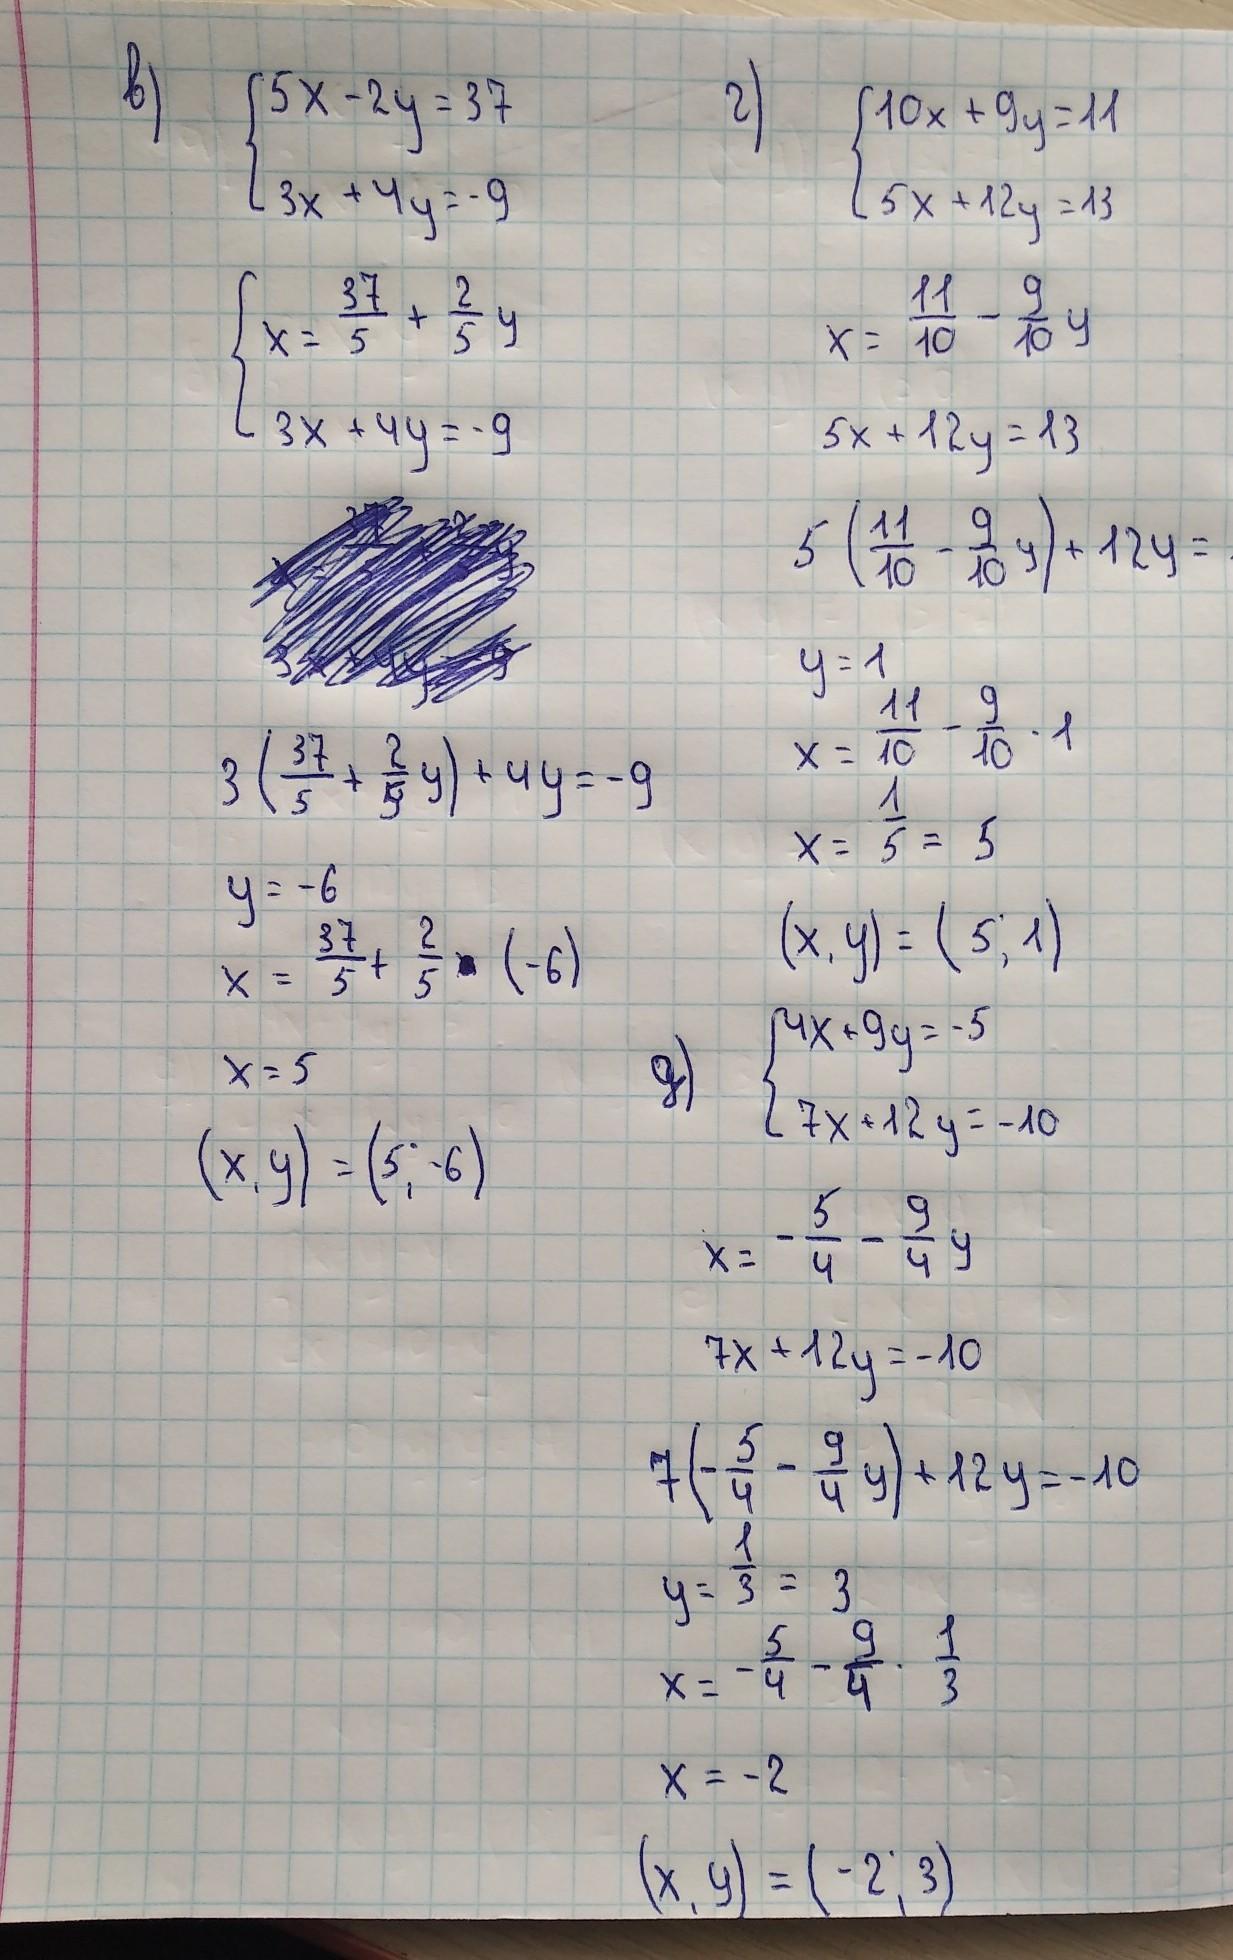 в)
{5x - 2y = 37
3x + 4y = -9
{x = 37/5 + 2/5 y
3x + 4y = -9
3(37/5 + 2/5 y) + 4y = -9
y = -6
x = 37/5 + 2/5 · (-6)
x = 5
(x, y) = (5; -6)
г)
{10x + 9y = 11
5x + 12y = 13
x = 11/10 - 9/10 y
5x + 12y = 13
5(11/10 - 9/10 y) + 12y =
y = 1
x = 11/10 - 9/10 · 1
x = 1/5 = 5
(x, y) = (5; 1)
д)
{4x + 9y = -5
7x + 12y = -10
x = -5/4 - 9/4 y
7x + 12y = -10
7(-5/4 - 9/4 y) + 12y = -10
y = 1/3 = 3
x = -5/4 - 9/4 · 1/3
x = -2
(x, y) = (-2; 3)